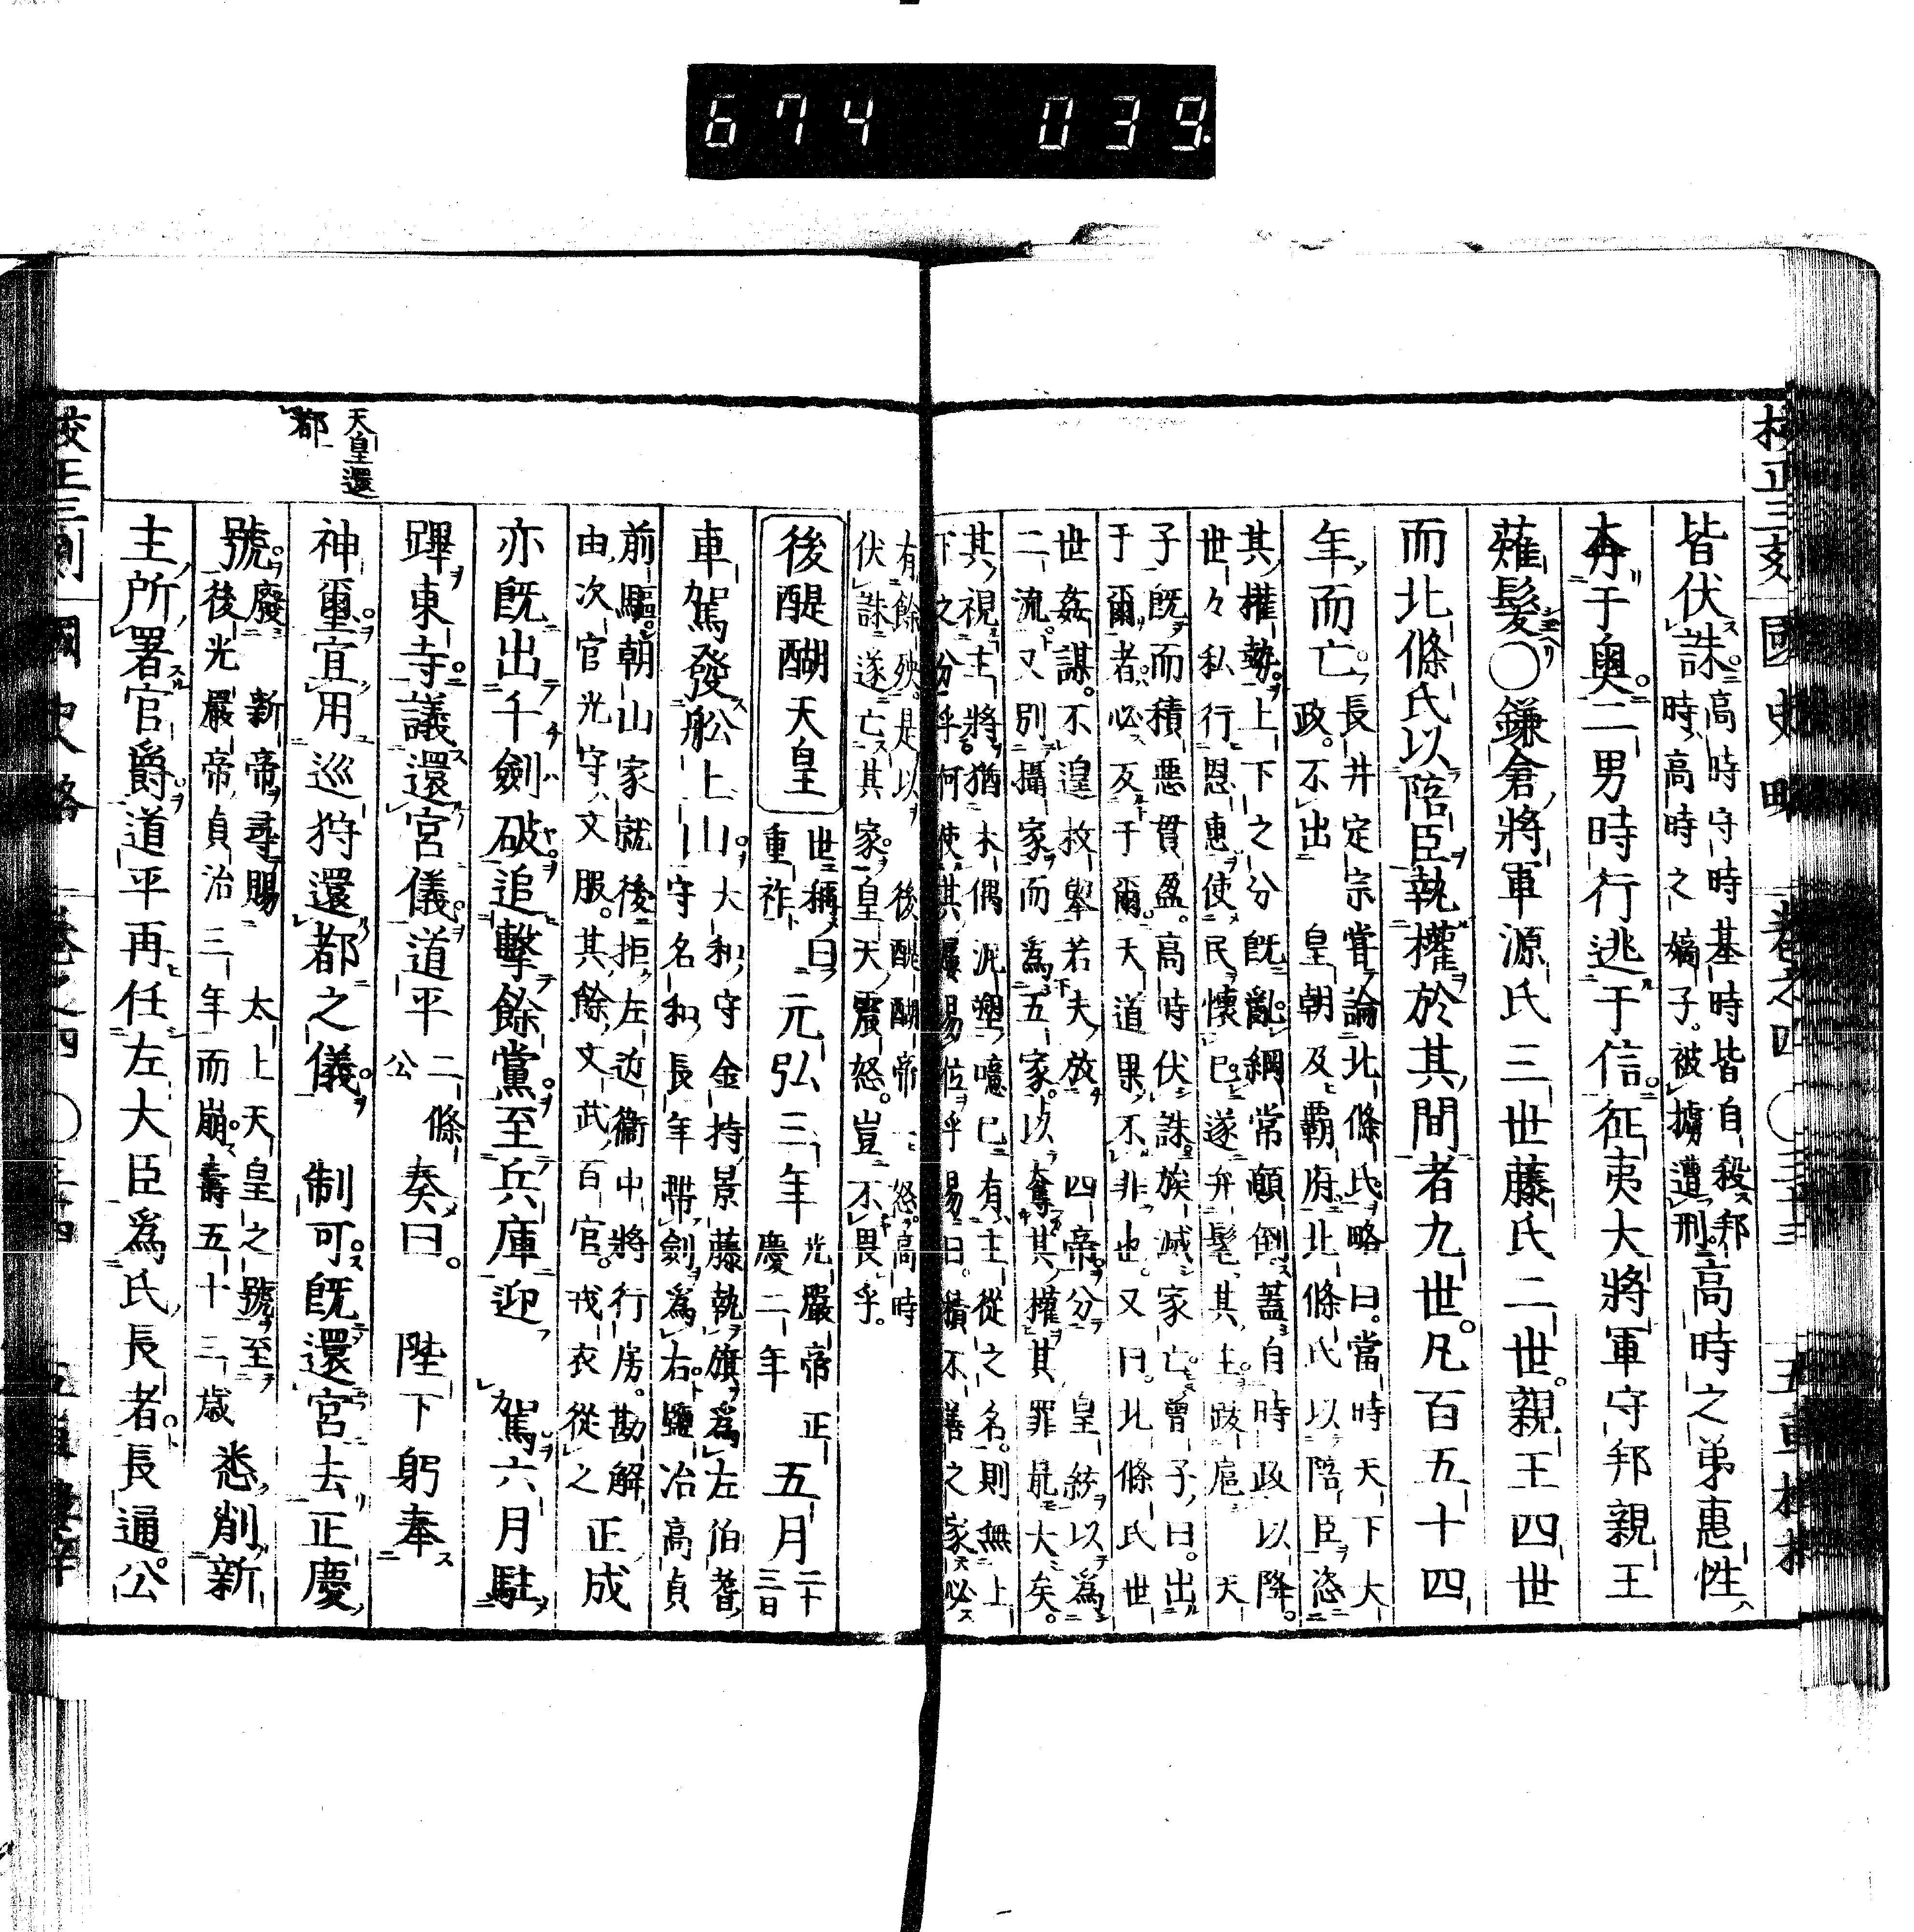 674 039.
校正三刻 國史略 卷之四 ○三十三 五車樓梓
皆伏誅。
高時守時基時皆自殺邦
時、高時之嫡子。被擄遭刑。
高時之弟惠性、
奔于奧。二男時行逃于信。征夷大將軍守邦親王
薙髮○鎌倉將軍源氏三世藤氏二世。親王四世
而北條氏以陪臣執權於其間者九世。凡百五十四
年而亡。
長井定宗嘗論北條氏略曰。當時天下大
政。不出 皇朝及覇府。北條氏以陪臣恣
其權勢。上下之分既亂。綱常顛倒。蓋自時政以降。
世々私行恩惠使民懷己。遂弁髦其主。跋扈 天
子既而積惡貫盈。高時伏誅。族滅家亡。曾子曰。出
于爾者。必反于爾。天道果不非也。又曰。北條氏世
世姦謀。不遑枚擧若夫放 四帝。分 皇統以爲
二流又別攝家而爲五家。以奪其權其罪尤大矣。
其視主將猶木偶泥塑。噫已有主從之名。則無上
下之分乎何使其屢易位乎易曰。積不善之家必
有餘殃。是以 後醍醐帝一怒。高時
伏誅遂亡其家。皇天震怒。豈不畏乎。
後醍醐天皇
世稱曰
重祚
元弘三年
光嚴帝正
慶二年
五月
二十
三日
車駕發舩上山。
大和守金持景藤執旗爲左伯耆
守名和長年帶劍爲右。鹽冶高貞
前驅。朝山家就後拒、左近衞中將行房。勘解
由次官光守、文服。其餘文武百官。戎衣從之
正成
亦既出千劍破追擊餘黨。至兵庫迎 駕六月駐
蹕東寺。議還宮儀。道平
二條
公
奏曰。 陛下躬奉
神璽。宜用巡狩還都之儀。 制可。既還宮去正慶
號。
廢 新帝尋賜 太上天皇之號至
後光嚴帝貞治三年而崩。壽五十三歲
悉削新
主所署官爵。道平再任左大臣爲氏長者。長通公
天皇還
都
校正三刻 國史略 卷之四 ○三十四 五車樓梓